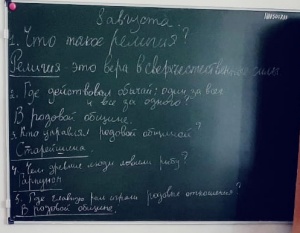 8 августа.
1. Что такое религия?
Религия - это вера в сверхъестественные силы
2. Где действовал обычай: один за всех
и все за одного?
В родовой общине.
3. Кто управлял родовой общиной?
Старейшина.
4. Чем древние люди ловили рыбу?
Гарпуном
5. Где главную роль играли родовые отношения?
В родовой общине.